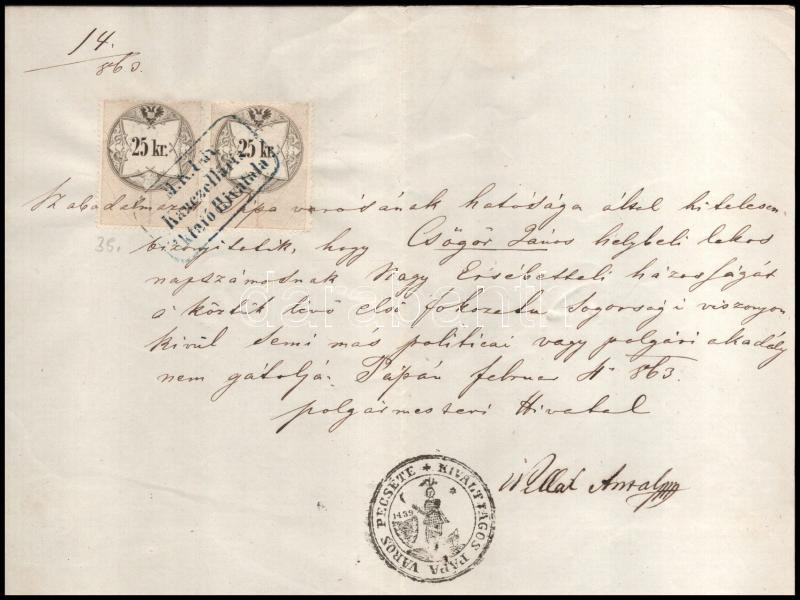 14.
863.
25 kr.
25 kr.
M. K. Udv.
Kanczellária
Iktató Hivatala
Szabadalmazott Pápa városának hatósága által hitelesen
35.
bizonyitatik, hogy Csögör János helybeli lakos
napszámosnak Nagy Ersébetteli házosságát
a köztük lévő első fokozatu sogorsági viszonyon
kivül semi más politicai vagy polgári akadály
nem gátolja. Pápán februar 4 863.
polgármesteri Hivatal
Antal
KIVÁLTSÁGOS PÁPA VÁROS PECSÉTE
1439
darabanth